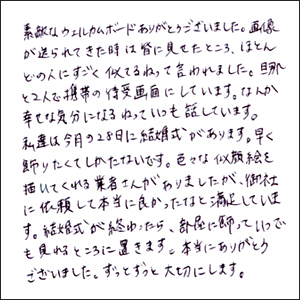 素敵なウェルカムボードありがとうございました。画像
が送られてきた時は皆に見せたところ、ほとん
どの人にすごく似てるねって言われました。旦那
と2人で携帯の待受画面にしています。なんか
幸せな気分になるねっていつも話しています。
私達は今月の28日に結婚式があります。早く
飾りたくてしかたないです。色々な似顔絵を
描いてくれる業者さんがありましたが、御社
に依頼して本当に良かったなと満足していま
す。結婚式が終わったら、部屋に飾っていつで
も見れるところに置きます。本当にありがとう
ございました。ずっとずっと大切にします。